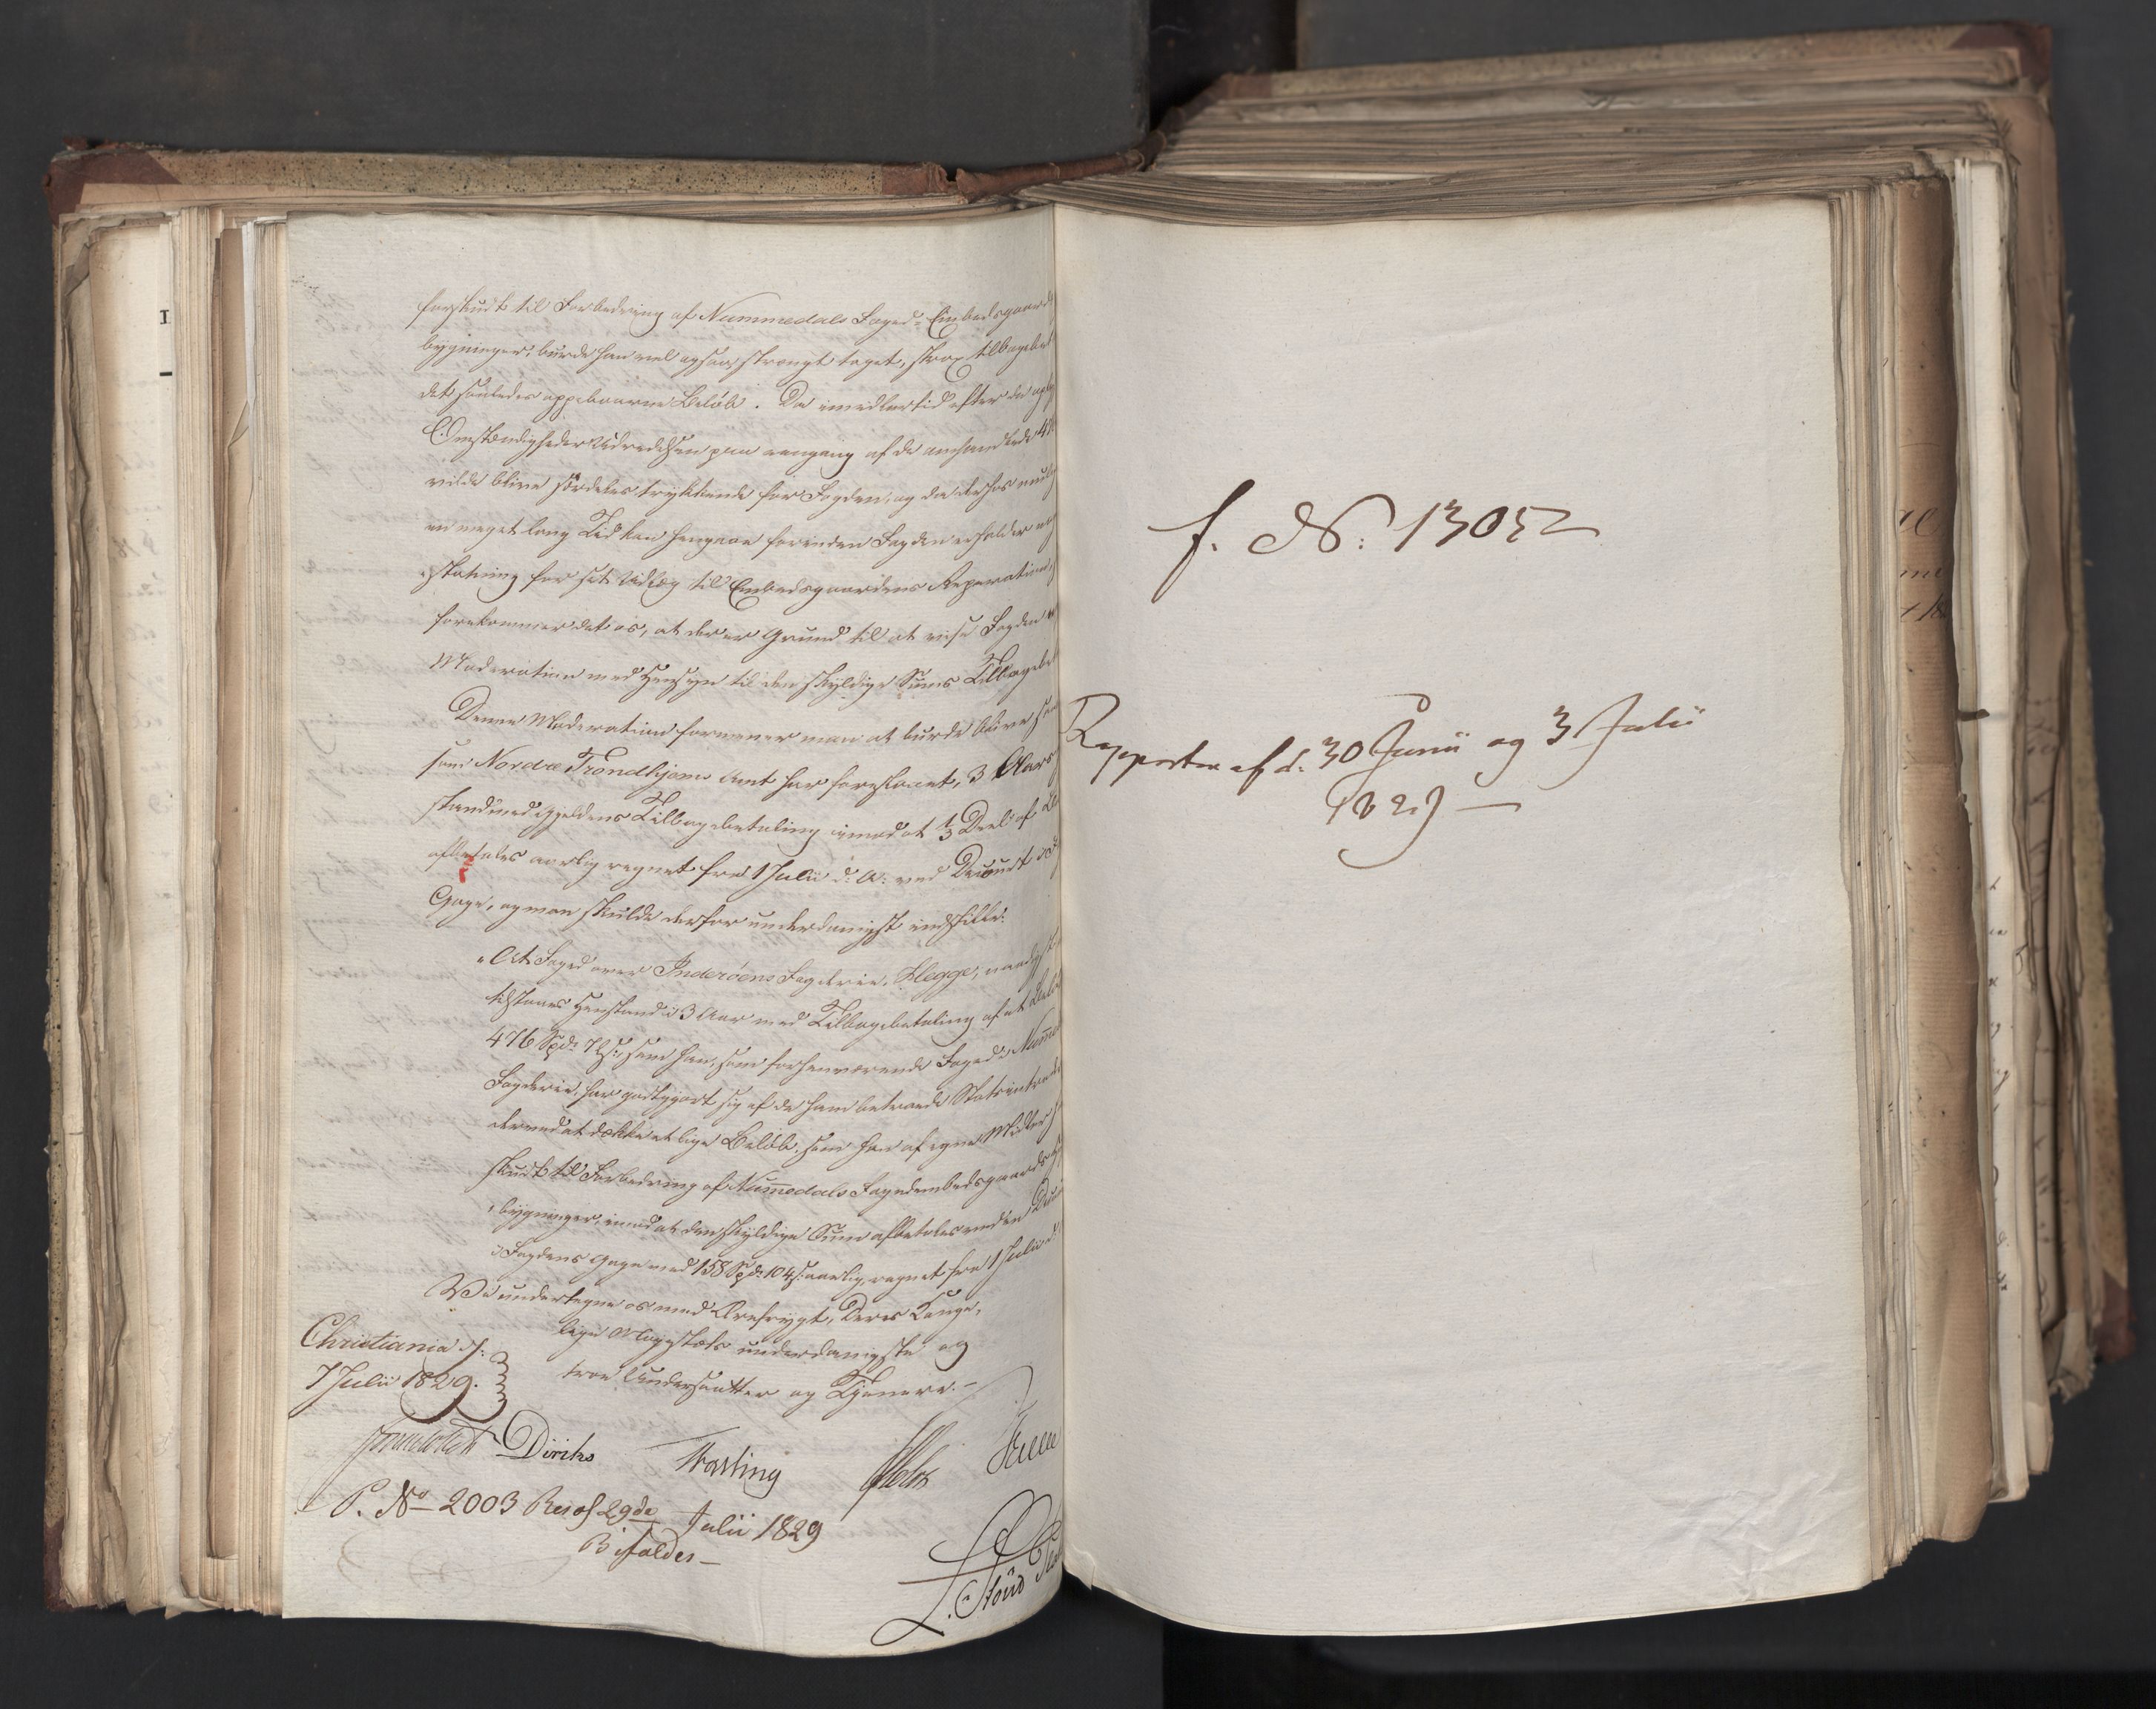 forskudt til Forbedring af Nummedals Foged-Embedsgaards
bygninger, burde han vel ogsaa, strængt taget, strax tilbagebet
det saaledes oppebaarne Beløb. Da imidlertid efter de
Omstændigheder Udredelsen paa eengang af de omhandlede 47
vilde blive særdeles trykkende for Fogden, og da derhos
en meget lang Tid kan hengaae forinden Fogden erholder
statning for sit Udlæg til Embedsgaardens Reparation,
forekommer det os, at der er Grund til at vise Fogden
Moderation med Hensyn til den skyldige Sums Tilbagebet
Denne Moderation formener man at burde blive
som Nordre Trondhjems Amt har foreslaaet, 3 Aars
stand med Gjældens Tilbagebetaling imod at 1/3 Deel af
afbetales aarlig regnet fra 1 Julii d: A: ved Decourt i
Gage, og man skulde derfor underdanigst indstille:
"At Foged over Inderøens Fogderie, Hegge, naadigst
tilstaaes Henstand i 3 Aar med Tilbagebetaling af et Beløb
476 Spd: 72 s:, som han, som forhenværende Foged i Num̅e
Fogderie, har godtgjort sig af de ham betroede Statsintrader
derved at dække et lige Beløb, som han af egne Midler
skudt til Forbedring af Num̅edals Fogedembedsgaards
bygninger, imod at den skyldige Sum afbetales ved en
i Fogdens Gage med 158 Spd: 104 s: aarlig, regnet fra 1 Julii d:
Vi undertegne os med Ærefrygt, Deres Konge-
lige Majestæts underdanigste og
troe Undersaatter og Tjenere.-
Christiania d:
7 Julii 1829.
Diriks Fasting Holst
P. No 2003 Res af 29de Julii 1829
Bifaldes-
f. N: 13052
Rapporter af d. 30 Junii og 3 Julii
1829 —